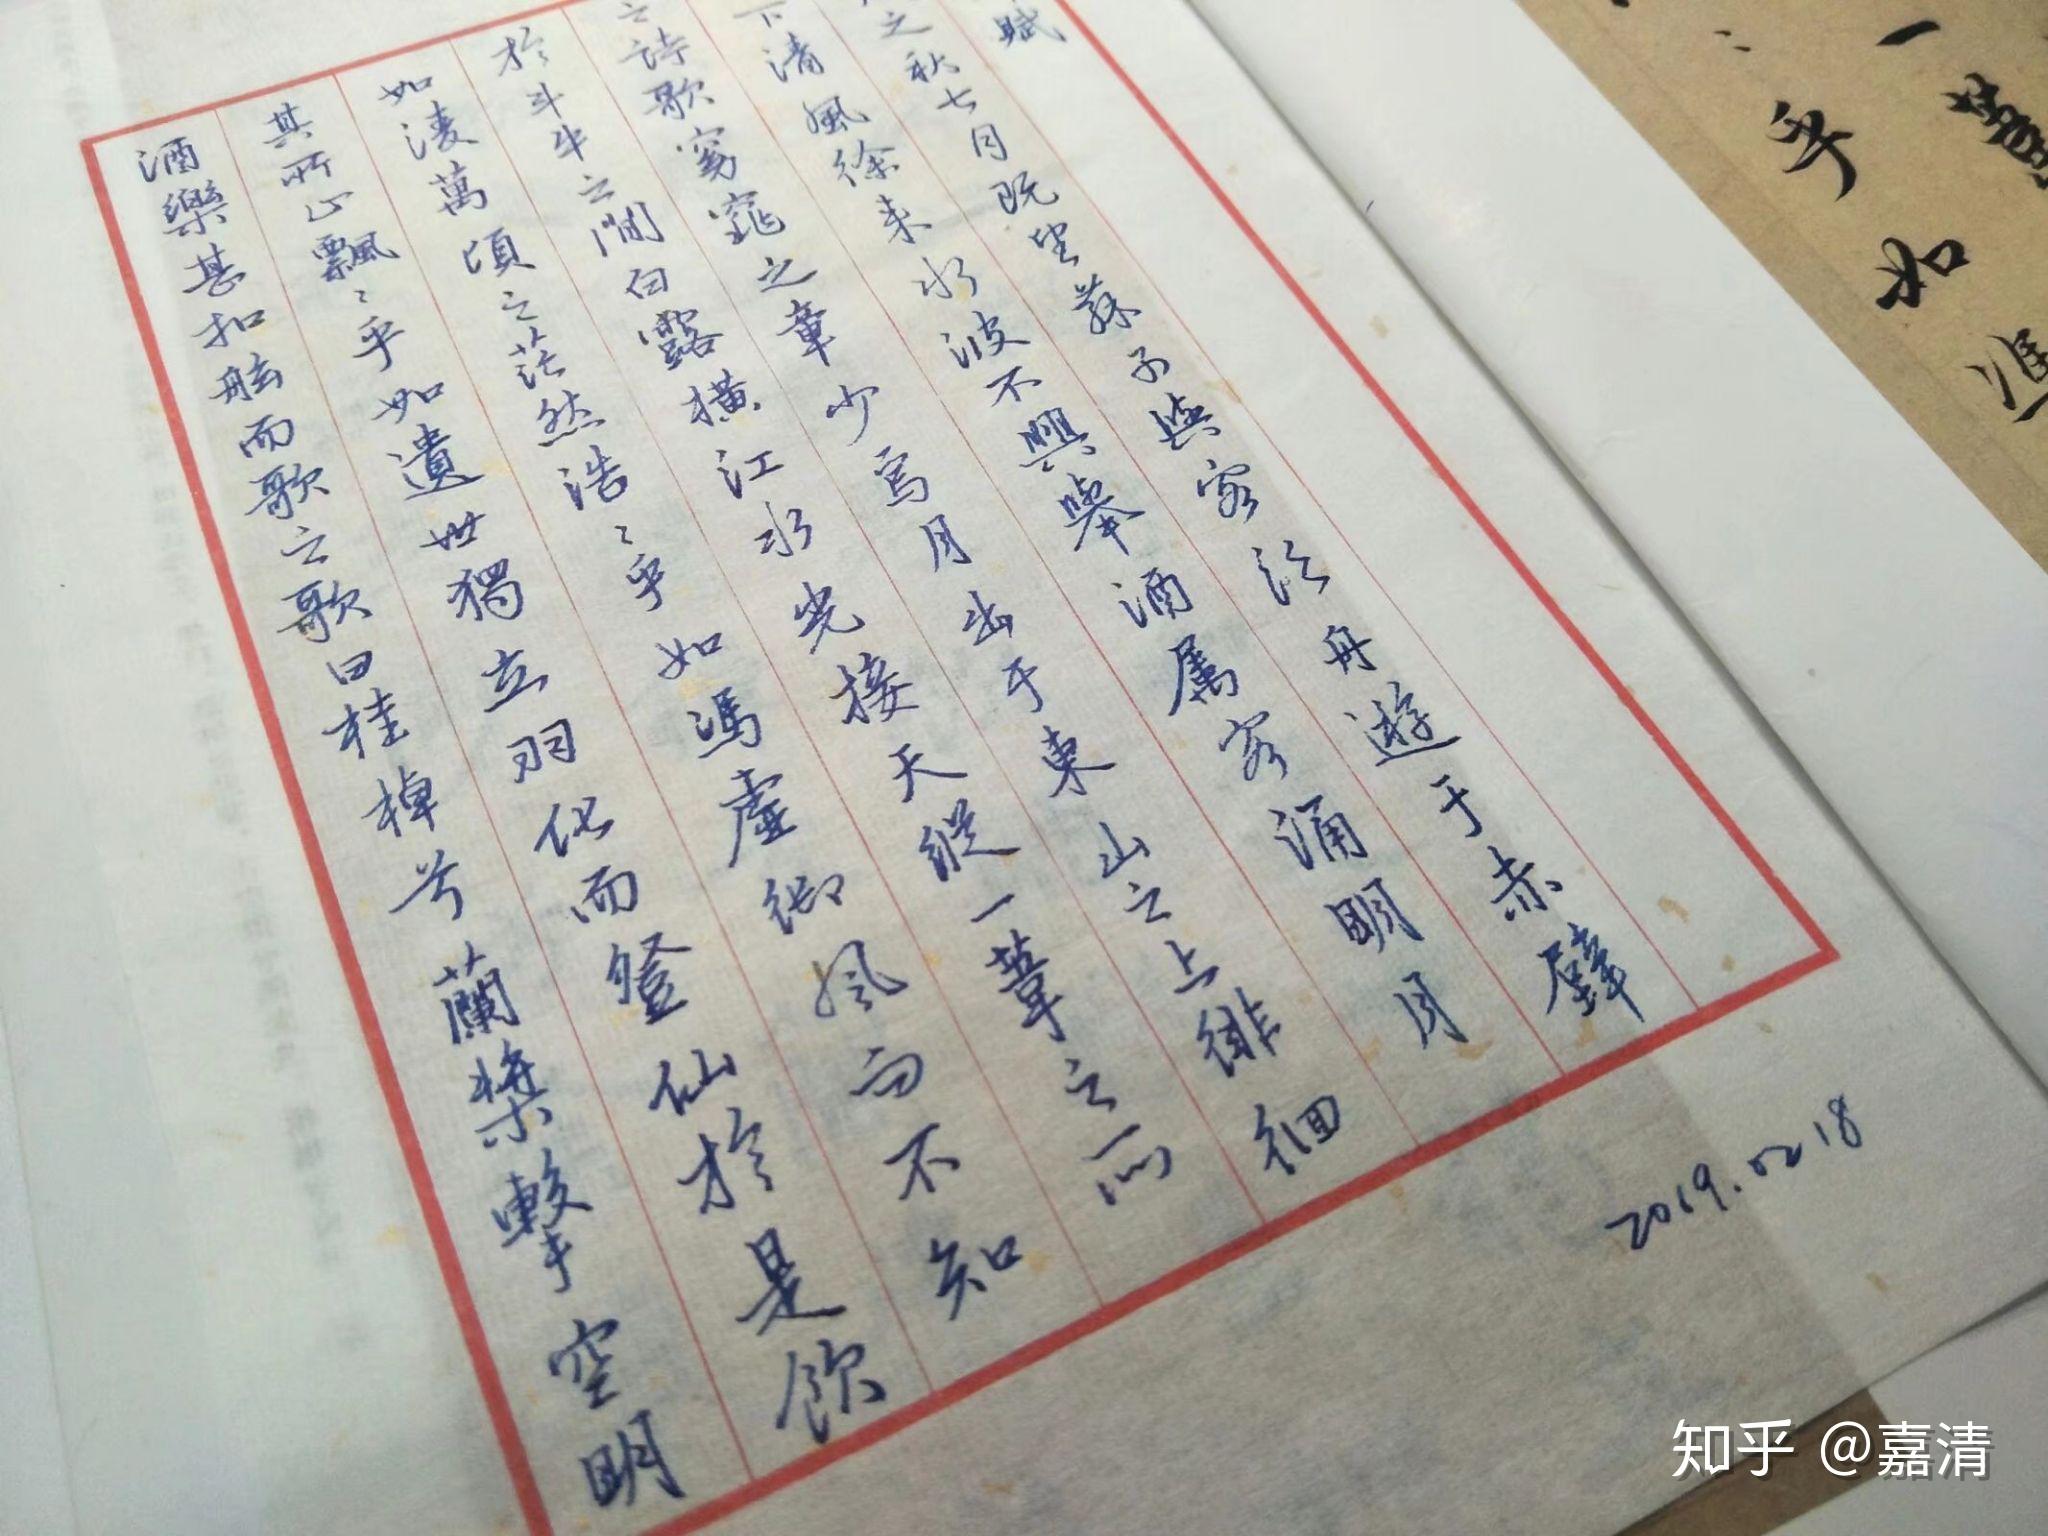 賦
之秋七月既望蘇子與客泛舟遊于赤壁
下清風徐來水波不興舉酒属客誦明月
之詩歌窈窕之章少焉月出于東山之上徘徊
於斗牛之間白露横江水光接天縱一葦之所
如凌萬頃之茫然浩〻乎如馮虛御風而不知
其所止飄〻乎如遺世獨立羽化而登仙於是飲
酒樂甚扣舷而歌之歌曰桂棹兮蘭槳擊空明
2019.02.18
一葦
乎如馮
知乎 @嘉清